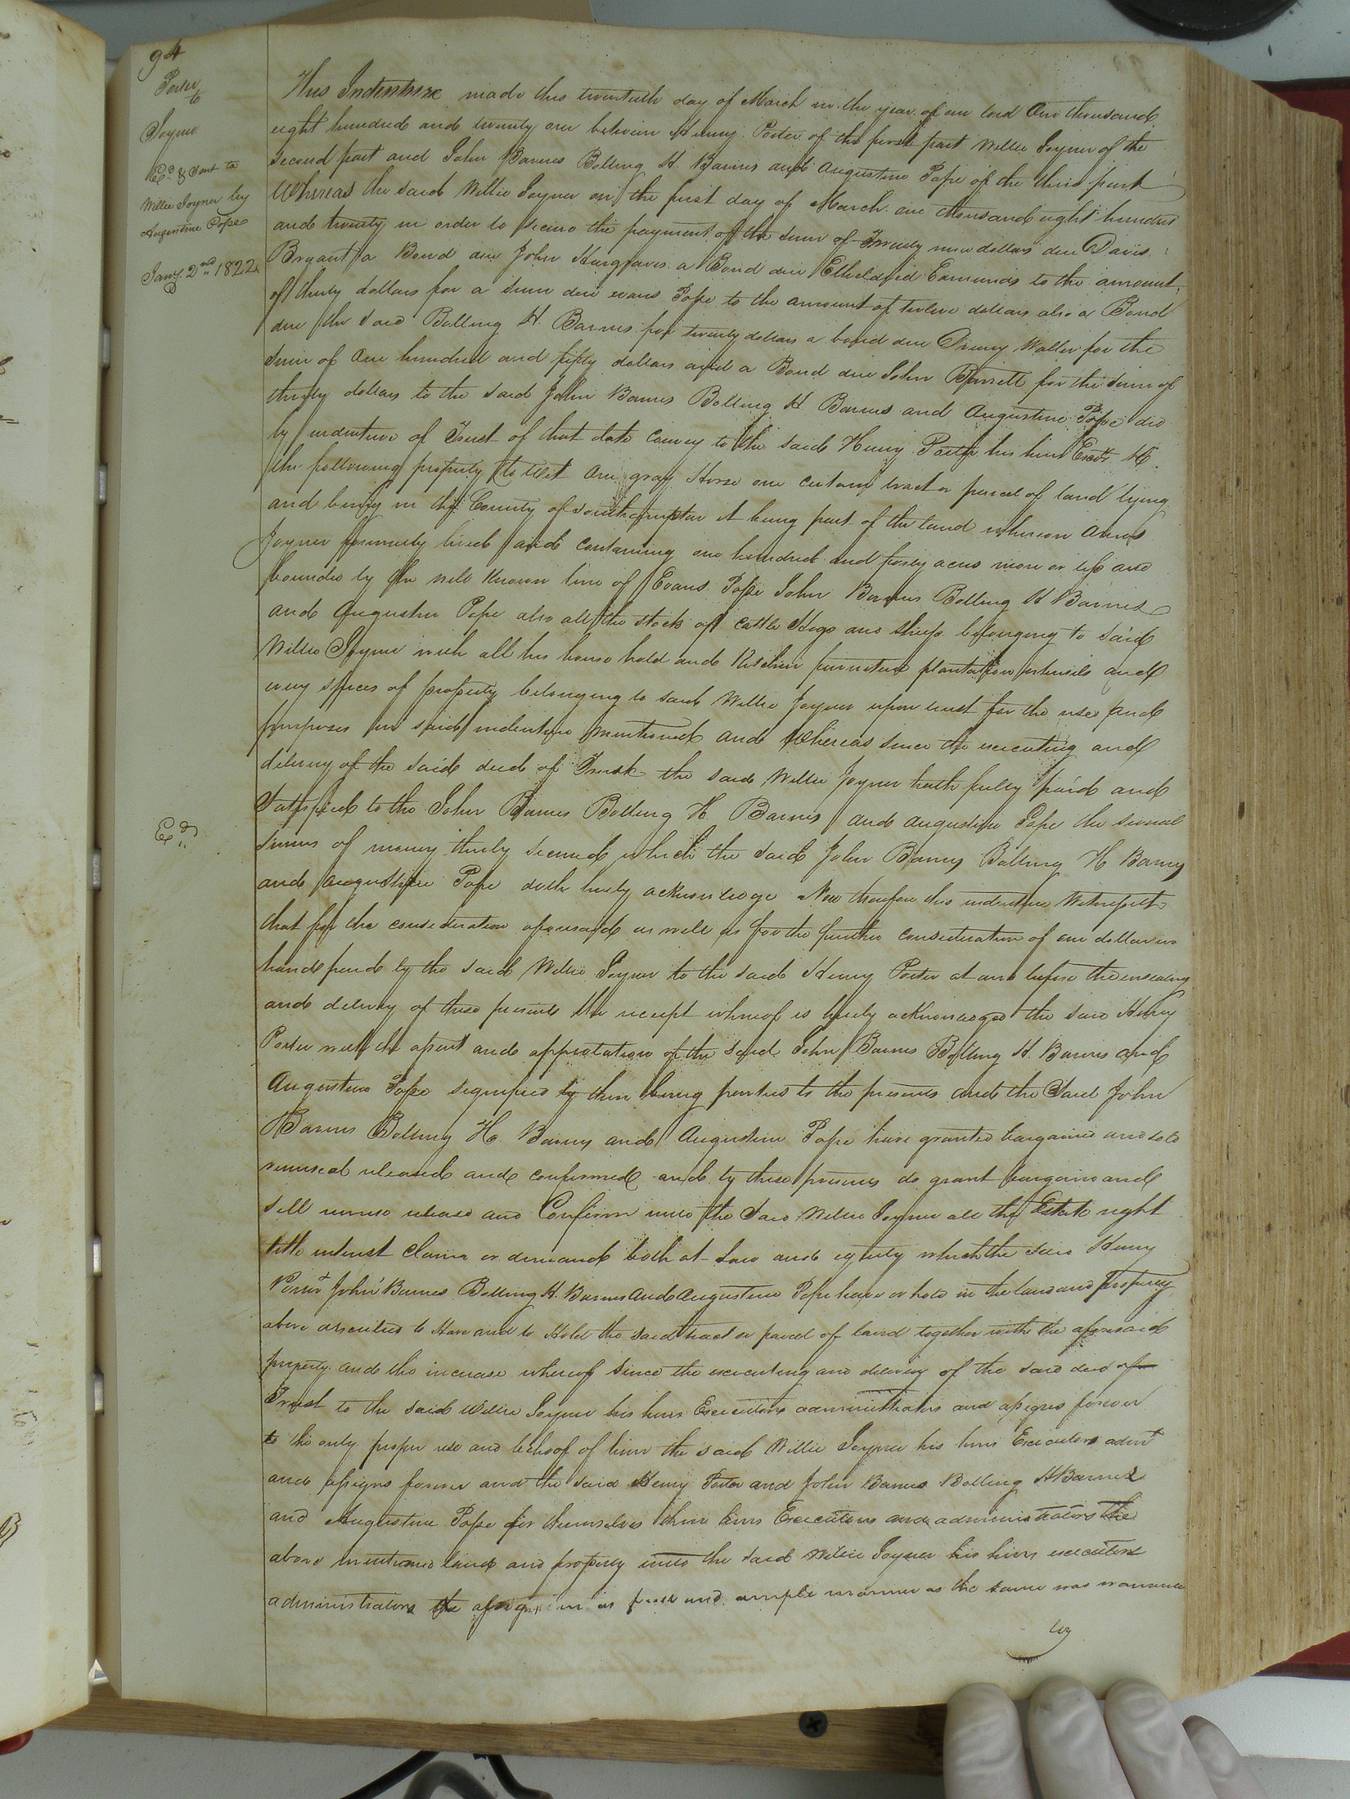 94
Porter
to
Joyner
Exd. & sent to
Willie Joyner by
Augustine Pope
Jany. 2nd 1822
This Indenture made this twentieth day of March in the year of our lord One thousand
eight hundred and twenty one between Henry Porter of the first part Willie Joyner of the
second part and John Barnes Bolling H. Barnes and Augustine Pope of the third part
Whereas the said Willie Joyner on the first day of March one thousand eight hundred
and twenty in order to secure the payment of the sum of Twenty nine dollars due Davis
Bryant a Bond due John Hargraves a Bond due Etheldred Edmunds to the amount
of thirty dollars for a sum due evans Pope to the amount of twelve dollars also a Bond
due the said Bolling H. Barnes for twenty dollars a bond due Drewry Waller for the
Sum of One hundred and fifty dollars and a Bond due John Barrett for the sum of
thirty dollars to the said John Barnes Bolling H Barnes and Augustine Pope did
by indenture of Trust of that date Convey to the said Henry Porter his heirs Exors. &c.
the following property to wit One gray Horse one certain tract or parcel of land lying
and being in the County of Southampton it being part of the land whereon Amos
Joyner formerly lived and containing one hundred and forty acres more or less and
bounded by the well known line of Evans Pope John Barnes Bolling H Barnes
and Augustine Pope also all the stock of cattle Hogs and sheep belonging to said
Willie Joyner with all his house hold and Kitchen furniture plantation utensils and
every spices of property belonging to said Willie Joyner upon trust for the uses and
purposes in said indenture mentioned and Whereas since the executing and
delivery of the said deed of Trust the said Willie Joyner hath fully paid and
Satisfied to the John Barnes Bolling H. Barnes and Augustine Pope the several
Exd.
sums of money thereby secured which the said John Barnes Bolling H Barnes
and Augustine Pope doth hereby acknowledge Now therefore this indenture Witnesseth
that for the consideration aforesaid as well as for the further consideration of one dollar in
hand paid by the said Willie Joyner to the said Henry Porter at and before the ensealing
and delivery of these presents the receipt whereof is hereby acknowledged the said Henry
Porter with the assent and approbation of the said John Barnes Bolling H. Barnes and
Augustine Pope signified by their being parties to the presents and the Said John
Barnes Bolling H. Barnes and Augustine Pope have granted bargained and sold
remised released and confirmed and by these presents do grant bargain and
Sell remise release and Confirm unto the Said Willie Joyner all the Estate right
title interest claim or demand both at law and equity which the said Henry
Porter John Barnes Bolling H. Barnes and Augustine Pope have or hold in the land and property
above described to Have and to Hold the said tract or parcel of land together with the aforesaid
property and the increase whereof since the executing and delivery of the said deed of
Trust to the said Willie Joyner his heirs Executors administrators and assigns forever
to the only proper use and behoof of him the said Willie Joyner his heirs Executors admrs
and assigns forever and the said Henry Porter and John Barnes Bolling H Barnes
and Augustine Pope for themselves their heirs Executors and administrators the
above mentioned land and property unto the said Willie Joyner his heirs executors
administrators the assigns in as full and ample manner as the same was
by